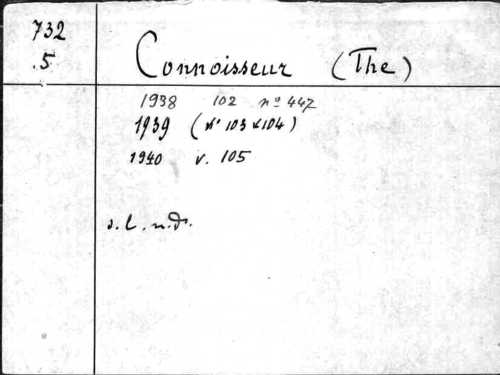 732
.5
Connoisseur (The)
1938 102 nº 447
1939 (nº 103 & 104)
1940 v. 105
s. l. n. d.